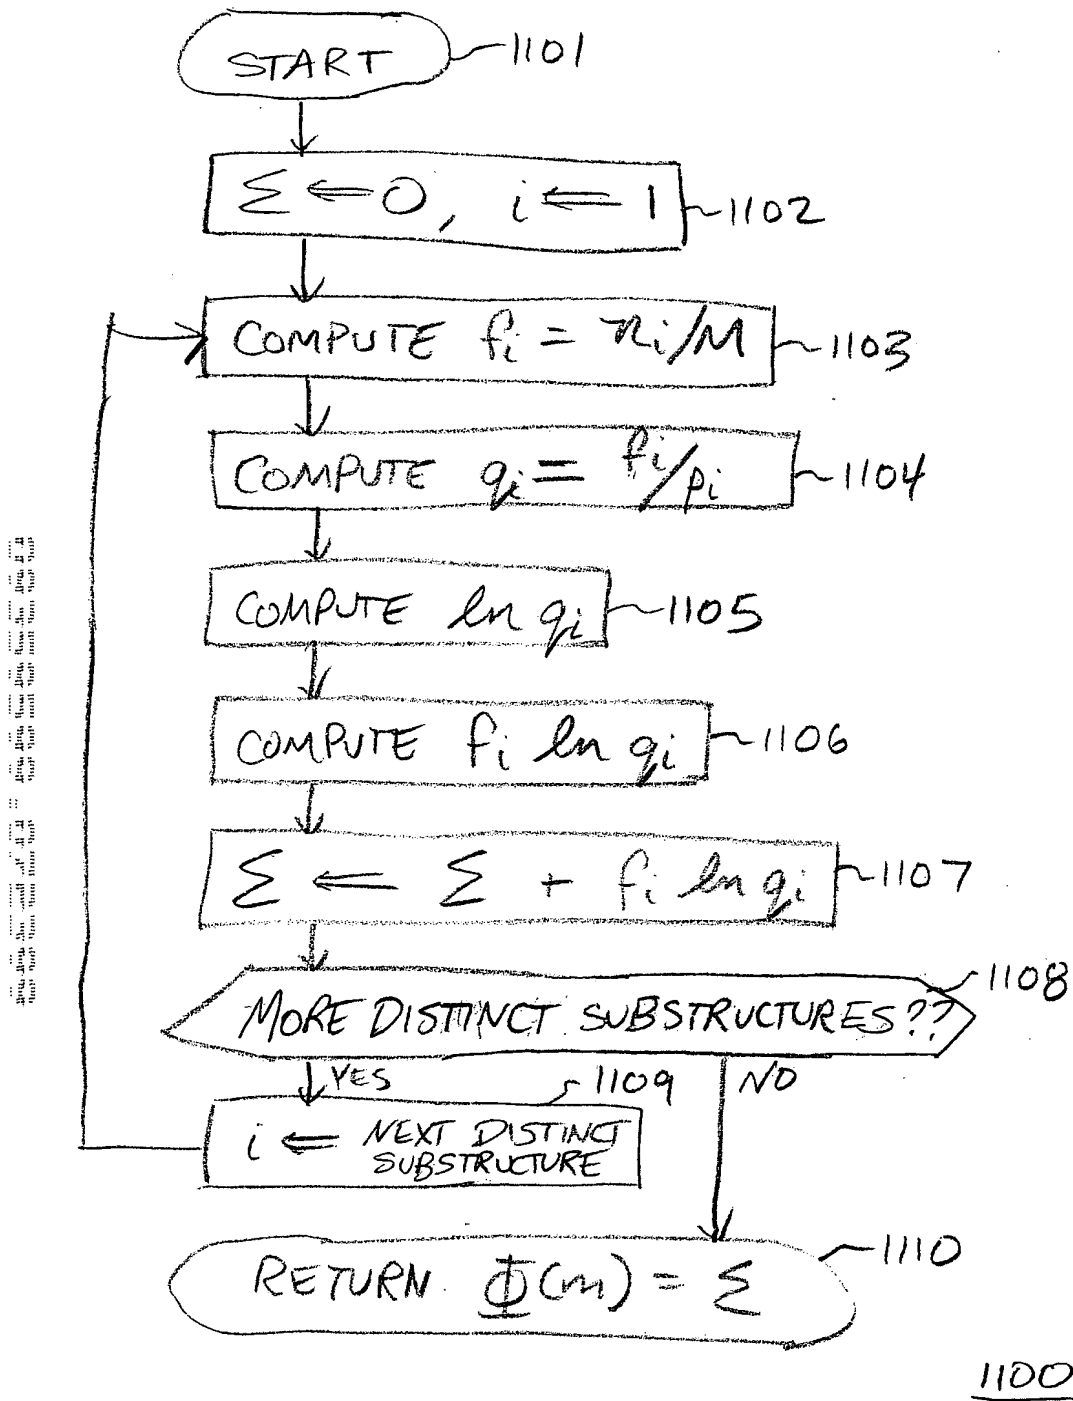 START 1101
Σ ⇐ 0, i ⇐ 1 1102
COMPUTE fi = ni/M 1103
COMPUTE qi = fi/pi 1104
COMPUTE ln qi 1105
COMPUTE fi ln qi 1106
Σ ⇐ Σ + fi ln qi 1107
MORE DISTINCT SUBSTRUCTURES?? 1108
YES 1109 NO
i ⇐ NEXT DISTINCT
SUBSTRUCTURE
RETURN Φ(m) = Σ 1110
1100